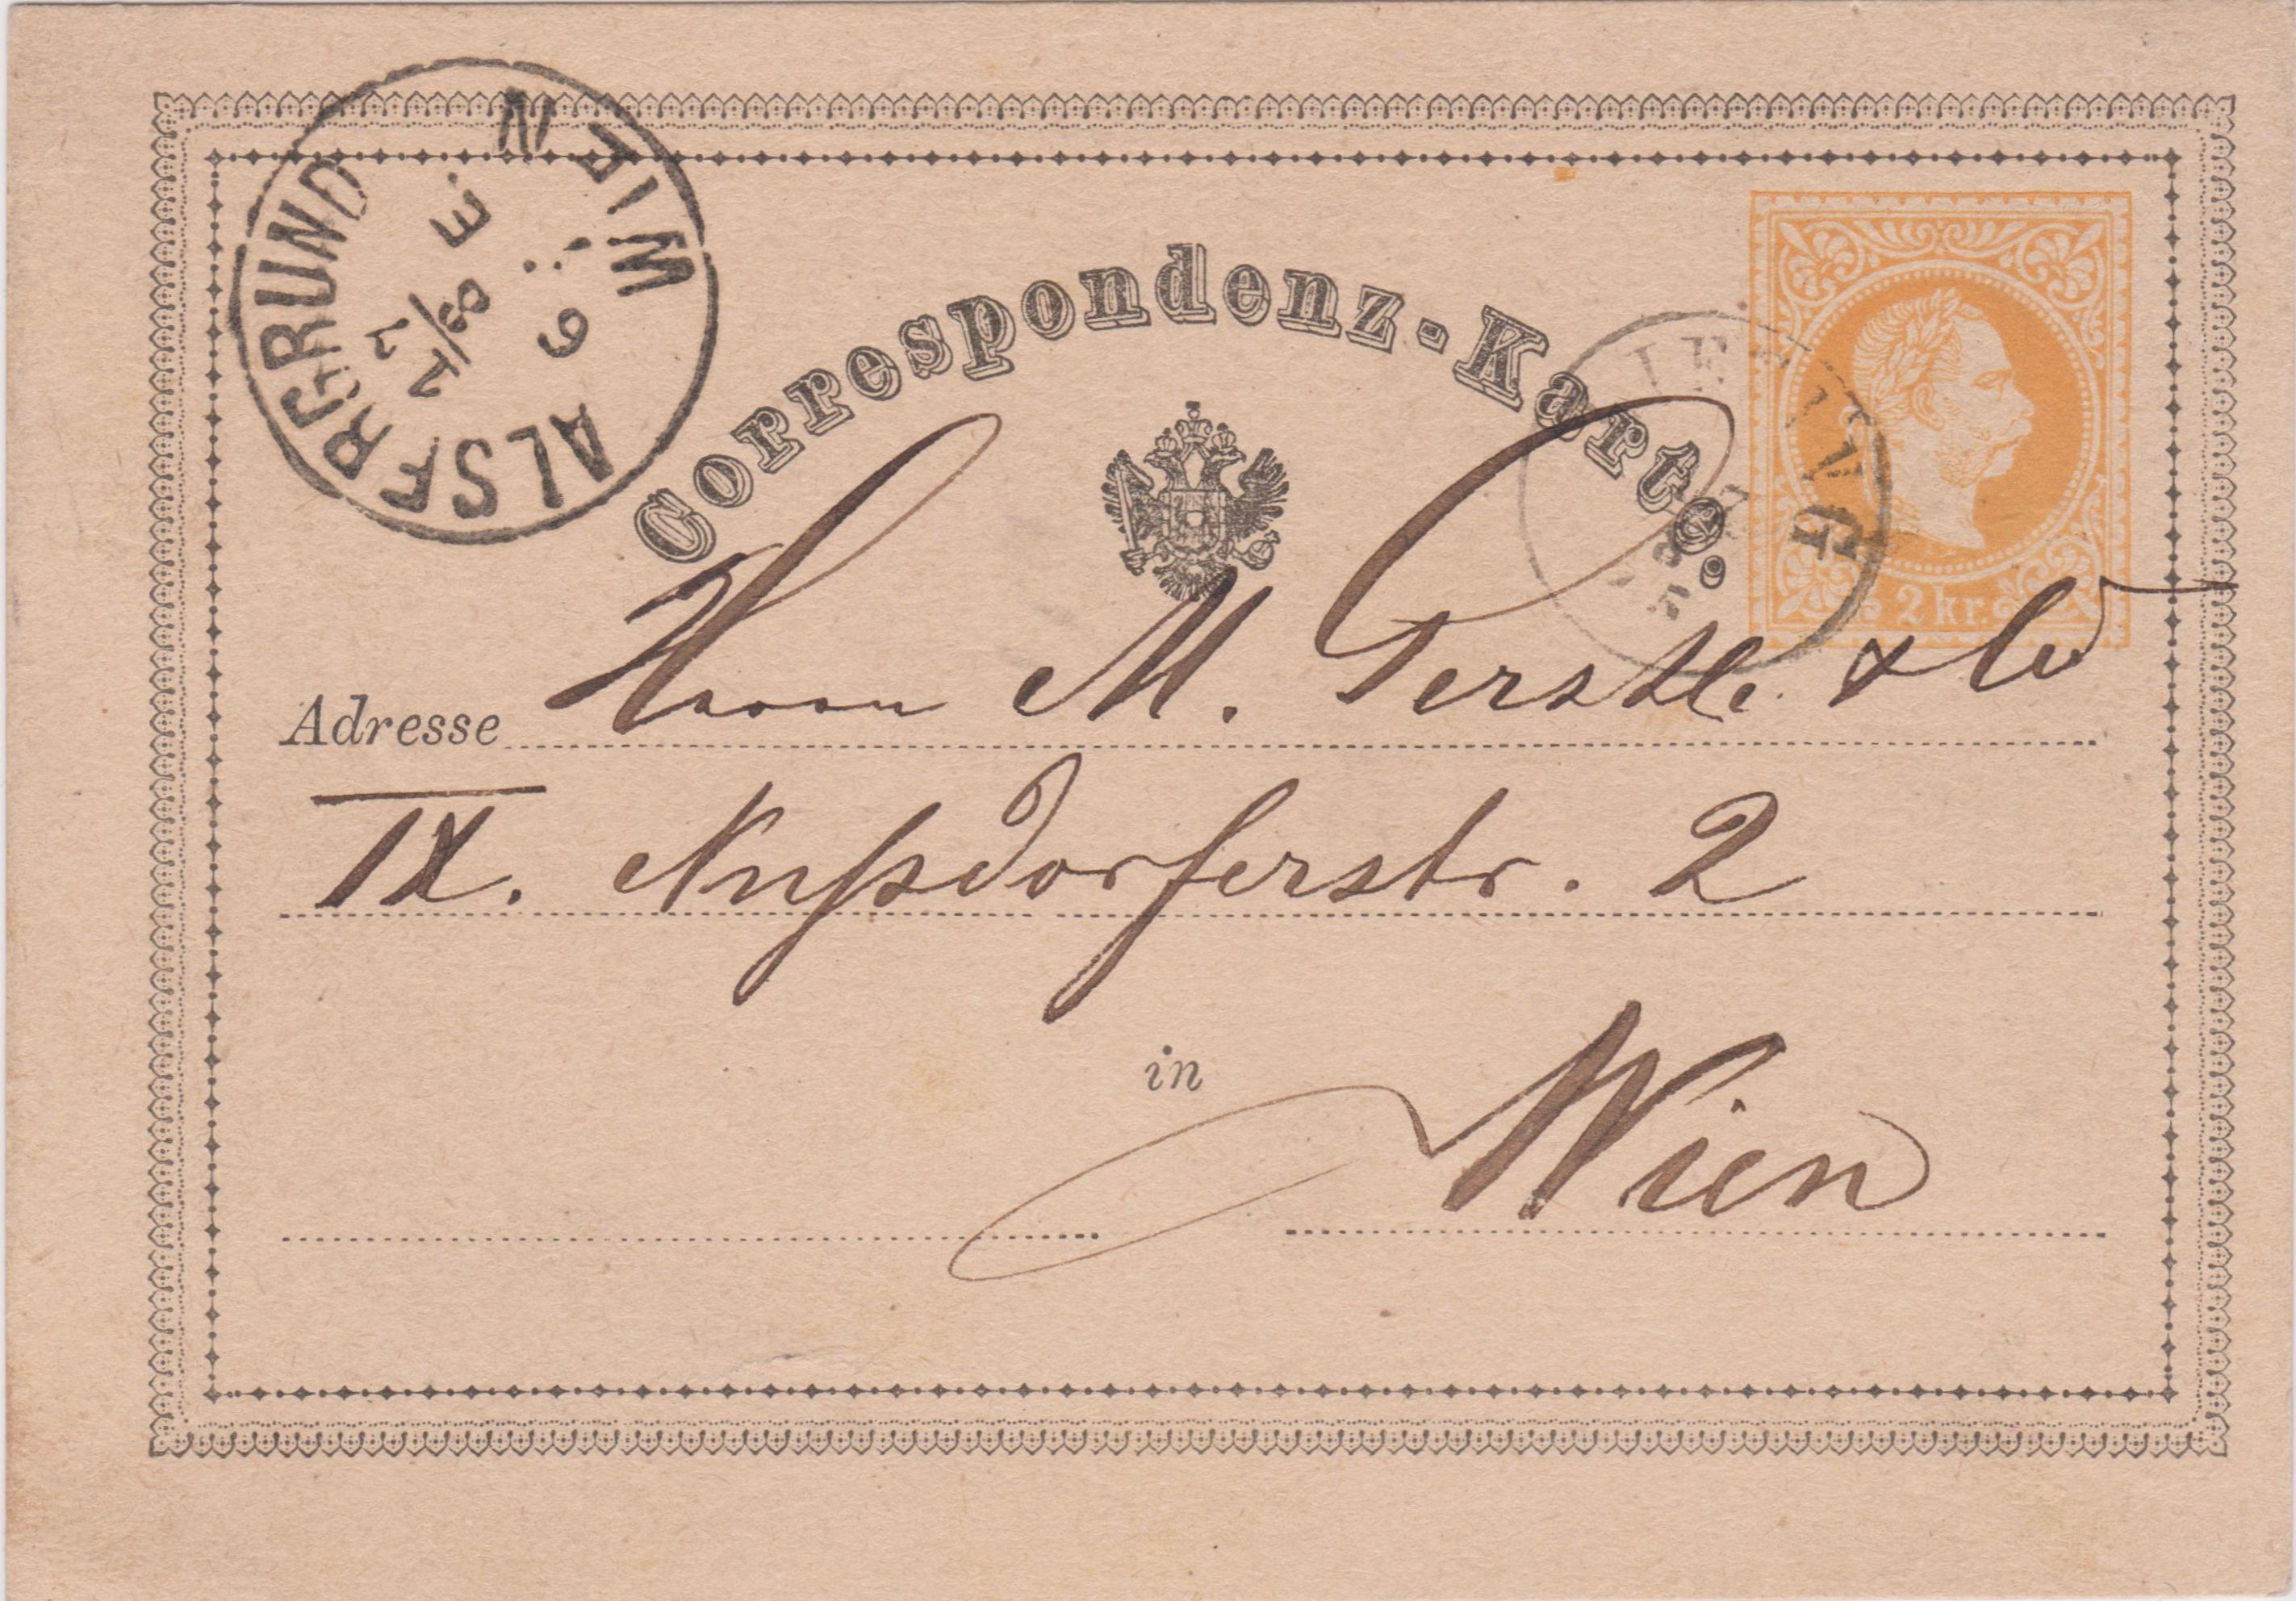 WIEN
ALSERGRUND
9
7/8
E
Correspondenz-Karte.
2 kr.
Adresse Herrn M. Gerstle & Co
IX. Nußdorferstr. 2
in Wien